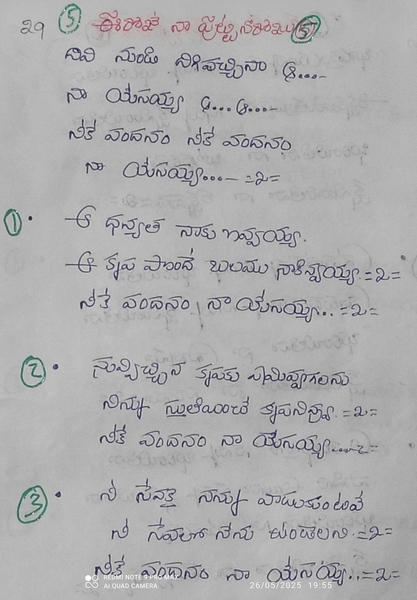 29 ⑤ ఈరోజే నా పుట్టినరోజు ⑤
దివి నుండి దిగివచ్చినా ఆ....
నా యేసయ్య ఆ...ఆ....
నీకే వందనం నీకే వందనం
నా యేసయ్య....- =2=
① • ఆ ధన్యత నాకు ఇవ్వయ్య.
ఆ కృప పొందే బలము నాకివ్వయ్య =2=
నీకే వందనం నా యేసయ్య.. =2=
② • నువ్విచ్చిన కృపకు ఏమివ్వగలను
నిన్ను స్తుతియించే కృపనివ్వు =2=
నీకే వందనం నా యేసయ్య....2=
③ • నీ సేవకై నన్ను వాడుకుంటావే
నీ సేవలో నేను ఉండాలని =2=
నీకే వందనం నా యేసయ్య.. =2=
REDMI NOTE 9 PRO MAX
AI QUAD CAMERA
26/05/2025 19:55